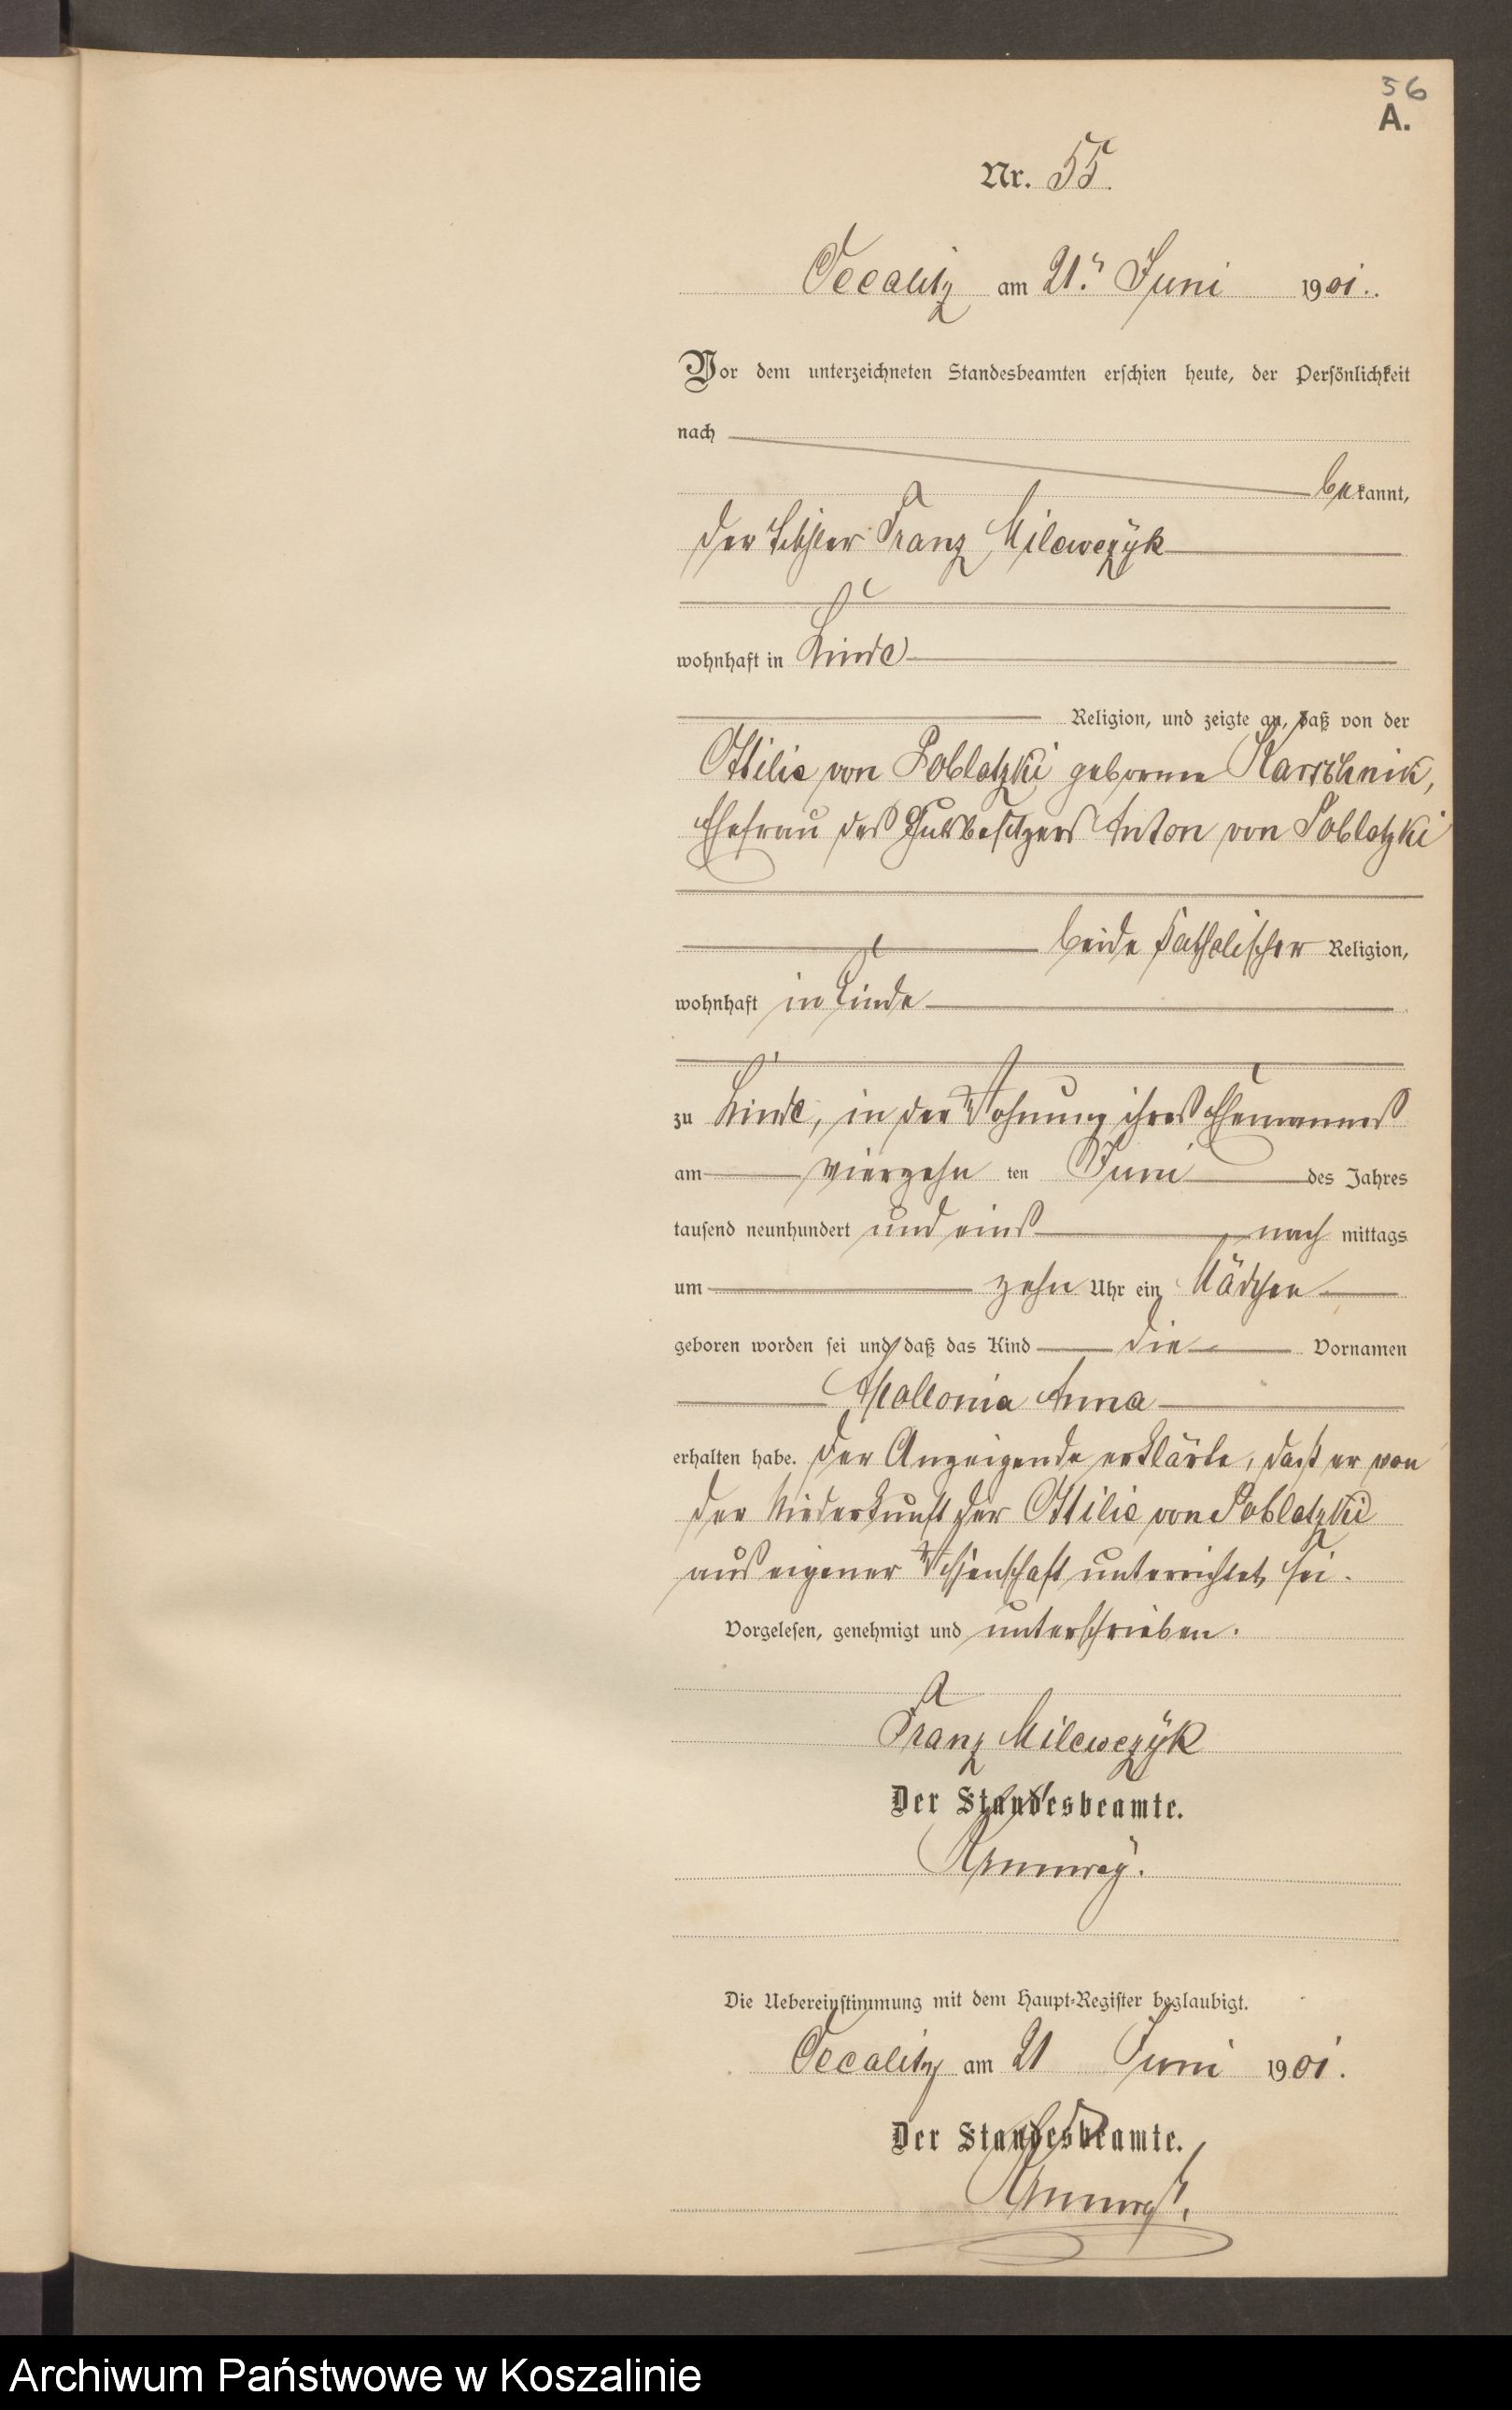 56
A.
Nr. 55.
Occalitz am 21. Juni 1901.
Vor dem unterzeichneten Standesbeamten erschien heute, der Persönlichkeit
nach
bekannt,
der Franz Milewczÿk
wohnhaft in Linde
Religion, und zeigte an, daß von der
Ottilie von Poblotzki geborene Karschnik,
Ehefrau des Gutsbesitzers Anton von Poblotzki
beide katholischer Religion,
wohnhaft in Linde
zu Linde, in der Wohnung ihres Ehemannes
am vierzehn ten Juni des Jahres
tausend neunhundert und eins nach mittags
um zehn Uhr ein Mädchen
geboren worden sei und daß das Kind die Vornamen
Apollonia Anna
erhalten habe. Der Anzeigende erklärte, daß er von
der Niederkunft der Ottilie von Poblotzki
aus eigener Wissenschaft unterrichtet sei.
Vorgelesen, genehmigt und unterschrieben.
Franz Milewczÿk
Der Standesbeamte.
Die Uebereinstimmung mit dem Haupt-Register beglaubigt.
Occalitz am 21 Juni 1901.
Der Standesbeamte.
Archiwum Państwowe w Koszalinie